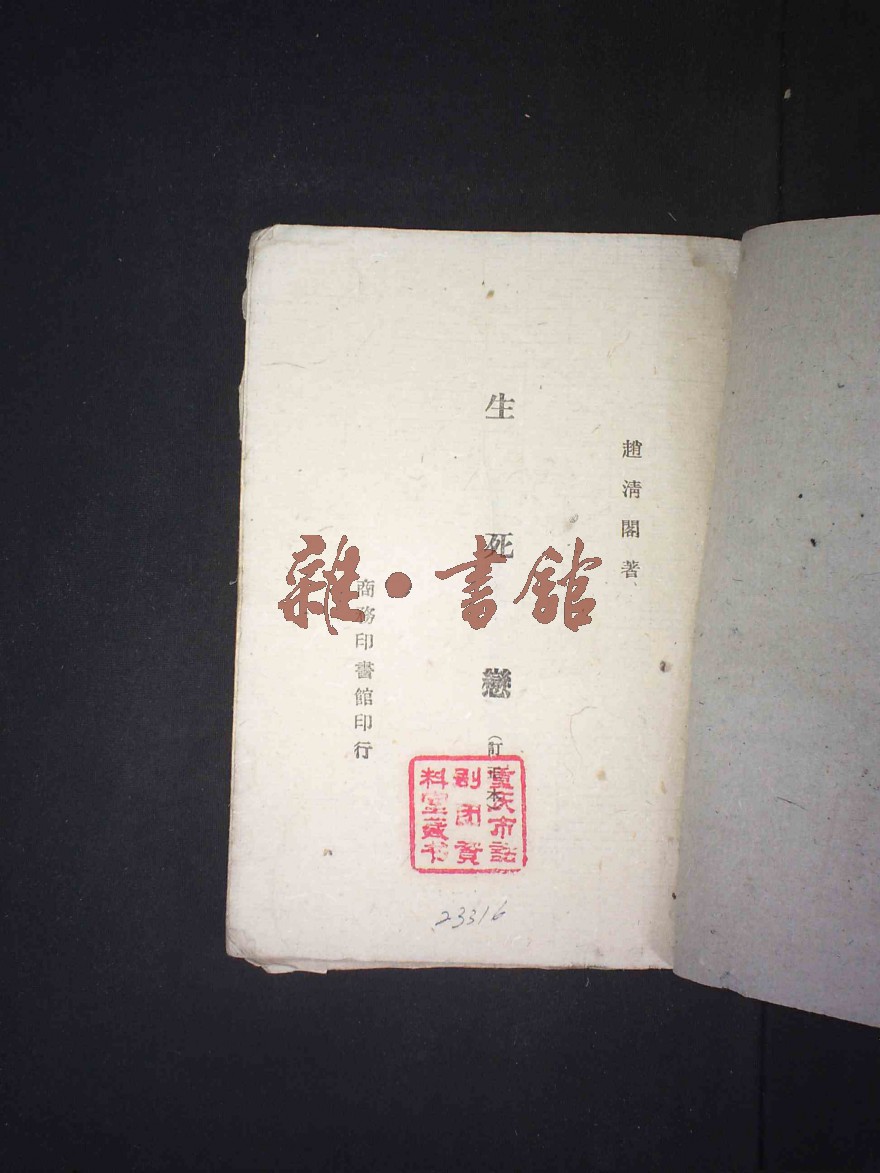 趙淸閣著
生死戀(訂正本)
商務印書館印行
雜·書館
重庆市話
剧团資
料室藏书
23316